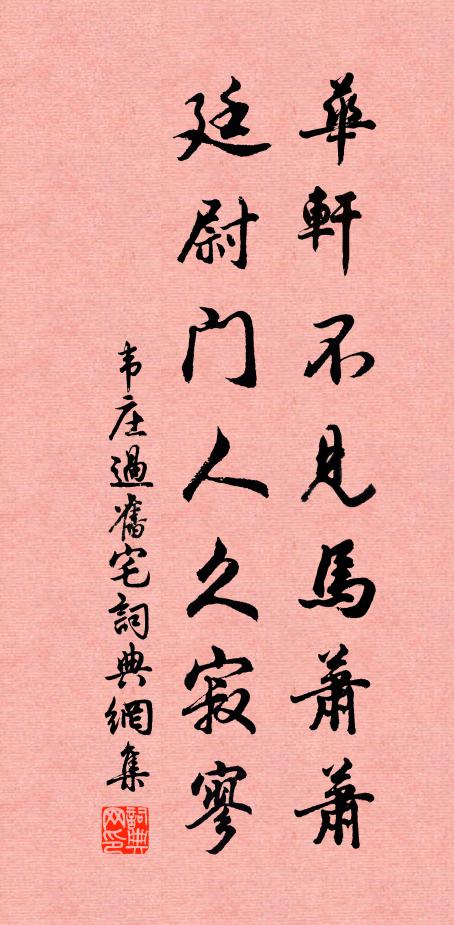 華軒不見馬蕭蕭
廷尉門人久寂寥
韦庄過舊宅詞典網集
詞典
网印